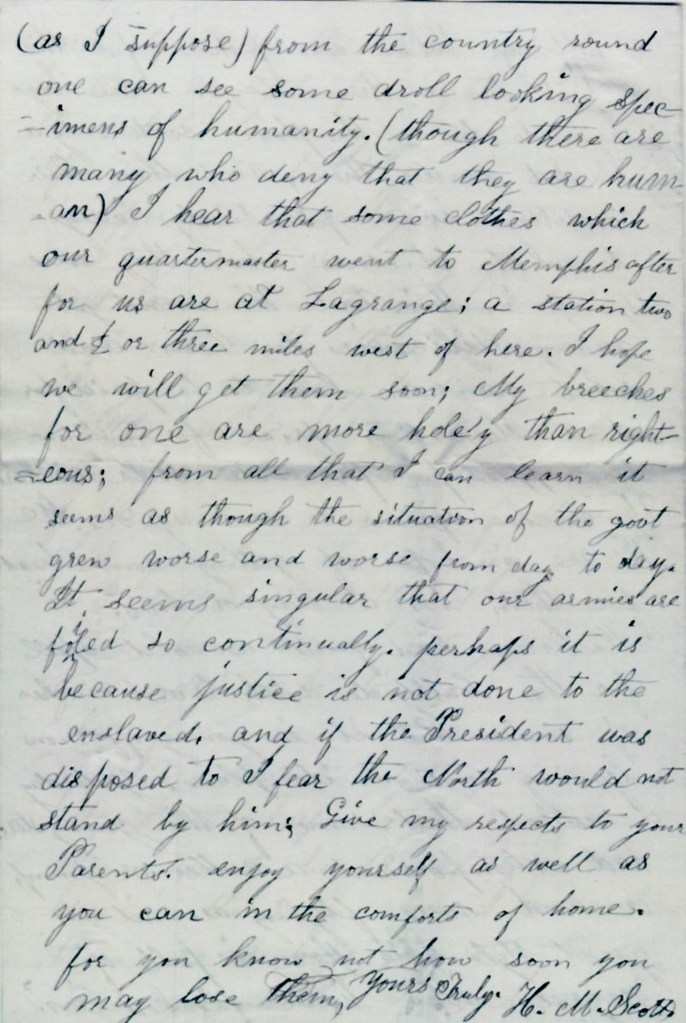 (as I suppose) from the country round
one can see some droll looking spec-
=imens of humanity. (though there are
many who deny that they are hum-
-an) I hear that some clothes which
our quartermaster went to Memphis after
for us are at Lagrange; a station two
and ½ or three miles west of here. I hope
we will get them soon; My breeches
for one are more hole'y than right-
=eous; from all that I can learn it
seems as though the situation of the govt
grew worse and worse from day to day.
It seems singular that our armies are
foiled so continually. perhaps it is
because justice is not done to the
enslaved, and if the President was
disposed to I fear the North would not
stand by him; Give my respects to your
Parents. enjoy yourself as well as
you can in the comforts of home.
for you know not how soon you
may lose them, Yours Truly. H. M. Scott